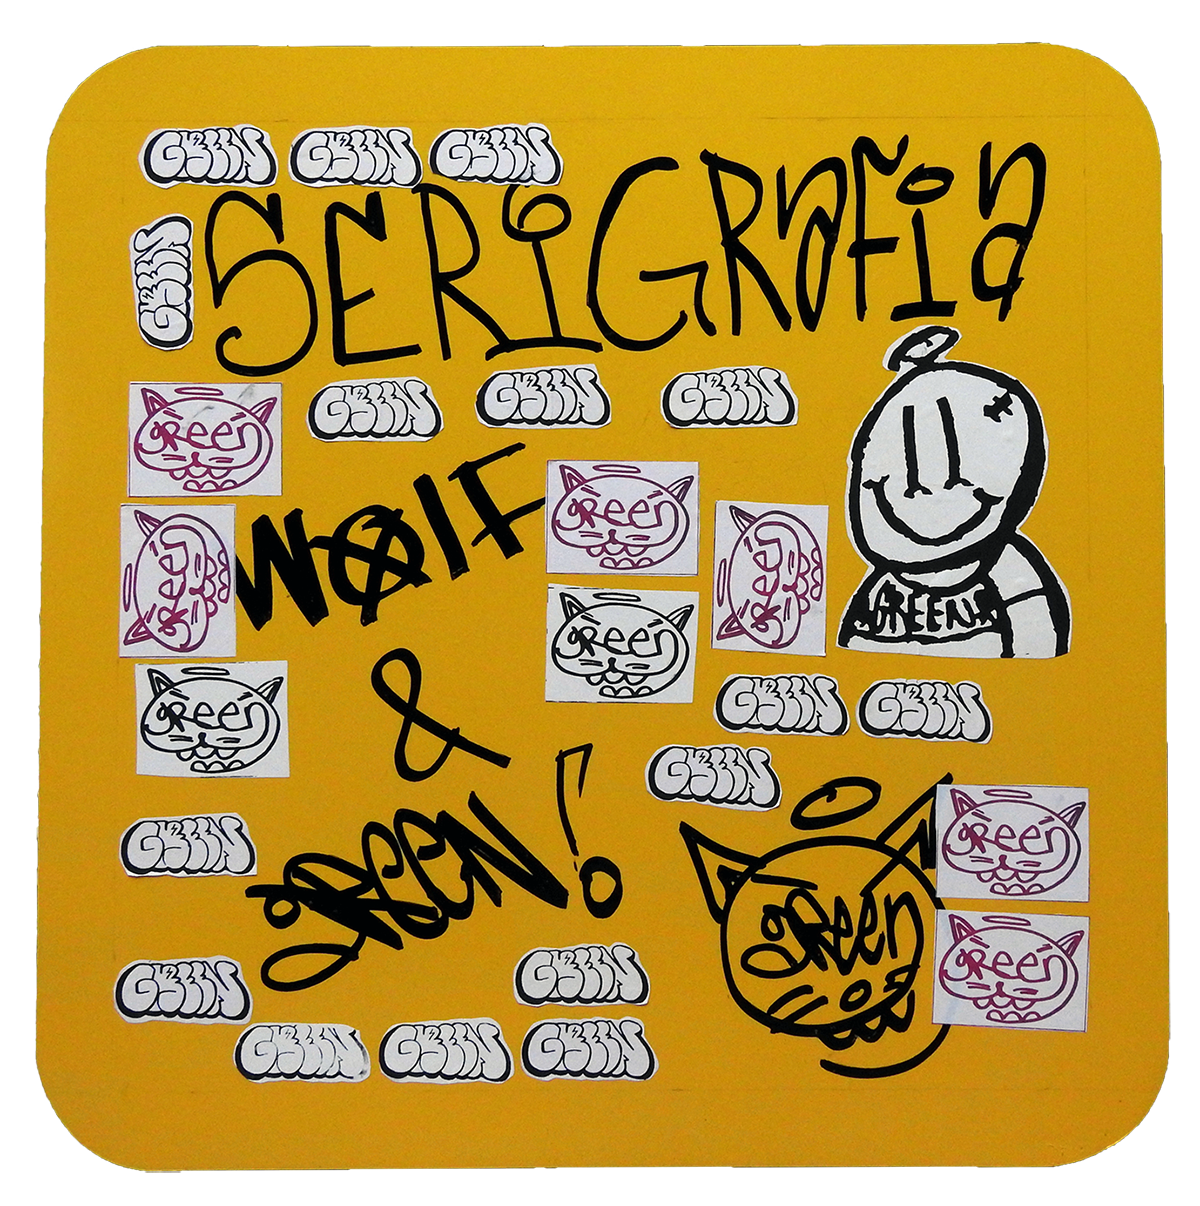 GREEN GREEN GREEN
SERiGRafia
GREEN
green GREEN GREEN GREEN
WØlF
green green green
green
GREEN
green
green
&
GREEN GREEN
GREEN
gREEN!
GREEN
green
green
green
GREEN GREEN
GREEN GREEN GREEN